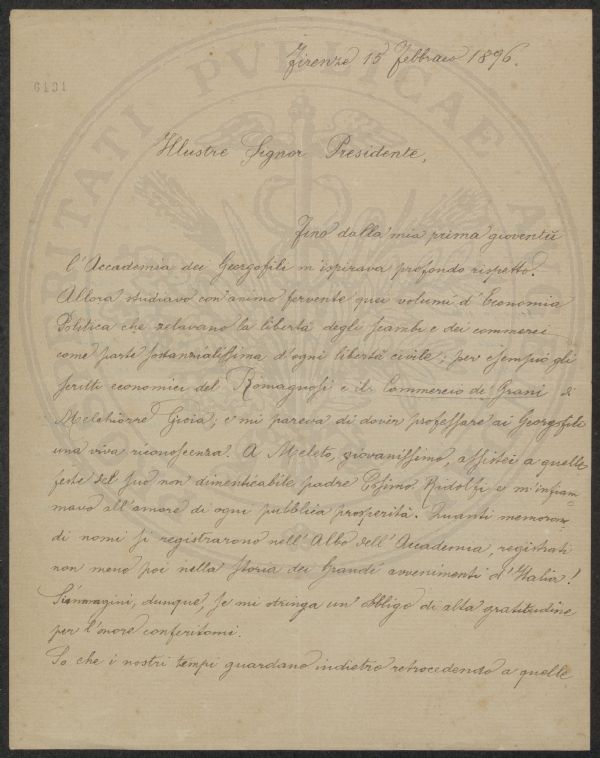 Firenze 15 Febbraio 1896.
6101
Illustre Signor Presidente,
Fino dalla mia prima gioventù
l'Accademia dei Georgofili m'ispirava profondo rispetto.
Allora studiavo con animo fervente quei volumi d'Economia
Politica che zelavano la libertà degli scambi e dei commerci
come parte sostanzialissima d'ogni libertà civile; per esempio gli
scritti economici del Romagnosi e il Commercio de' Grani di
Melchiorre Gioia; e mi pareva di dover professare ai Georgofili
una viva riconoscenza. A Meleto, giovanissimo, assistei a quelle
feste del suo non dimenticabile padre Cosimo Ridolfi e m'infiam-
mavo all'amore di ogni pubblica prosperità. Quanti memoran-
di nomi si registrarono nell'Albo dell'Accademia, registrati
non meno poi nella storia dei Grandi avvenimenti d'Italia!
S'immagini, dunque, se mi stringa un obbligo di alta gratitudine
per l'onore conferitomi.
So che i nostri tempi guardano indietro retrocedendo a quelle
PROSPERITATI PUBLICAE